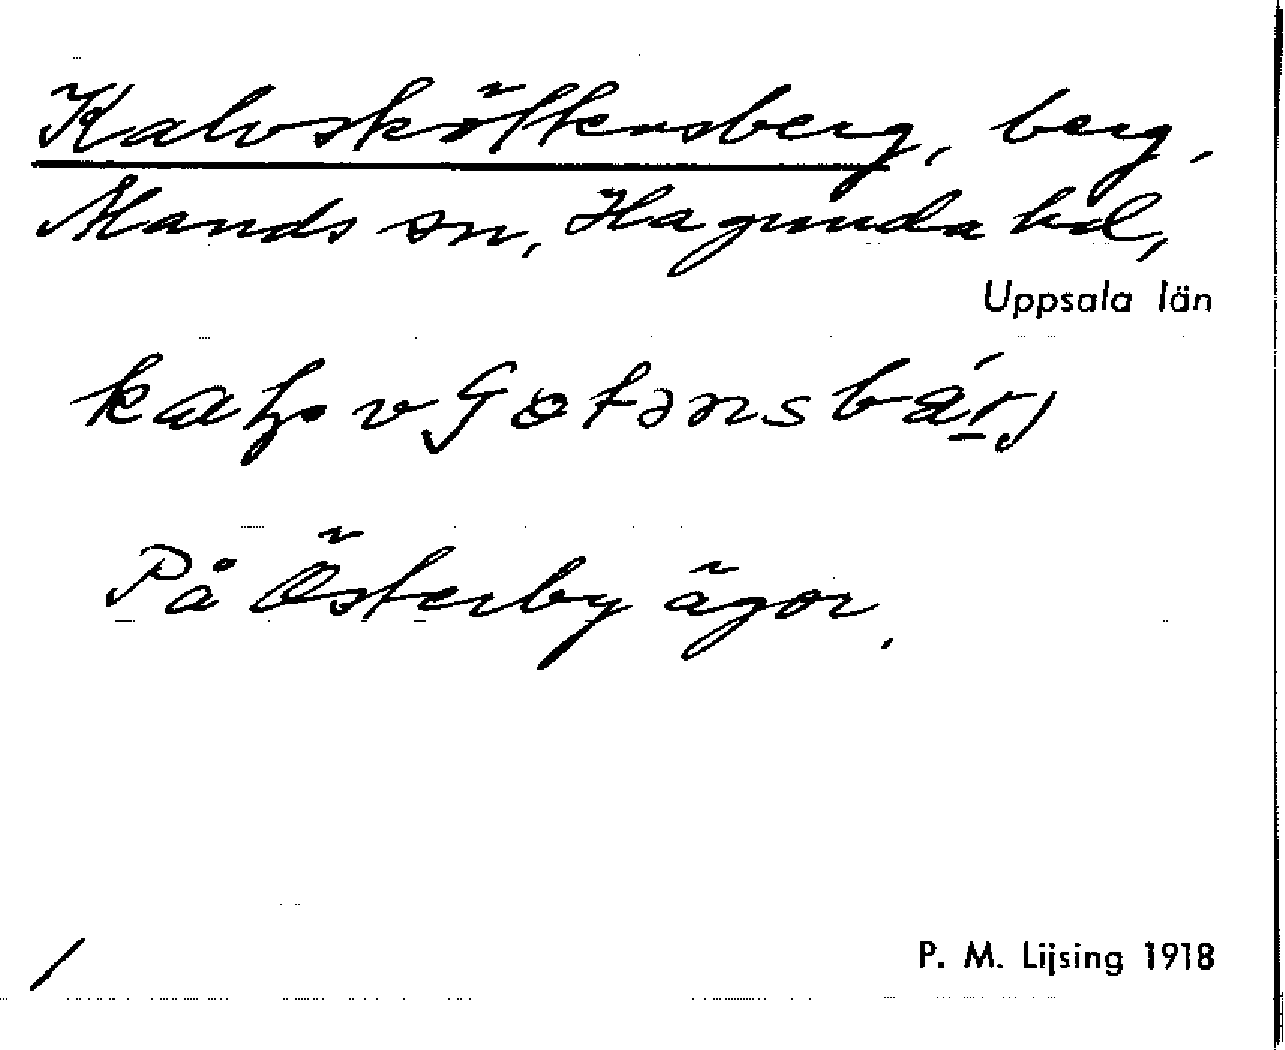 Kalvsköttensberg, berg,
Alands sn, Hagunda hd,
Uppsala län
På Österby ägor,
P. M. Lijsing 1918